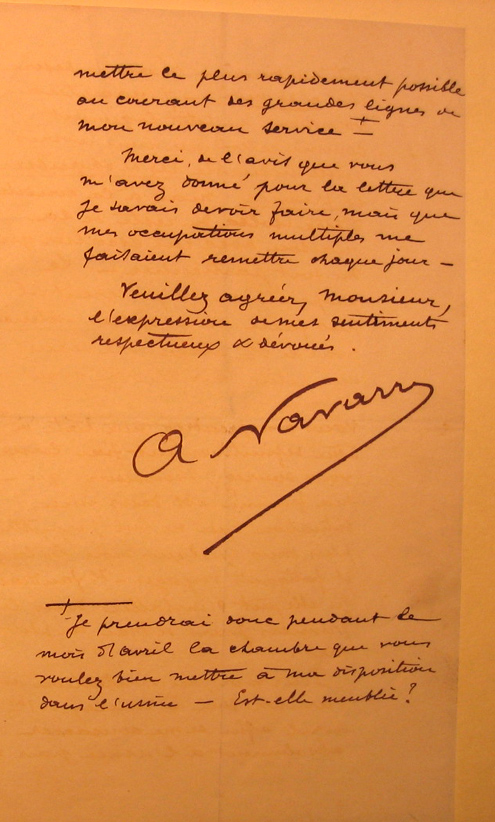 mettre le plus rapidement possible
au courant des grandes lignes de
mon nouveau service +
Merci, de l'avis que vous
m'avez donné pour la lettre que
je savais devoir faire, mais que
mes occupations multiples me
faisaient remettre chaque jour —
Veuillez agréer, Monsieur,
l'expression de mes sentiments
respectueux & dévoués.
A Navarre
+ Je prendrai donc pendant le
mois d'avril la chambre que vous
voulez bien mettre à ma disposition
dans l'usine — Est-elle meublée?